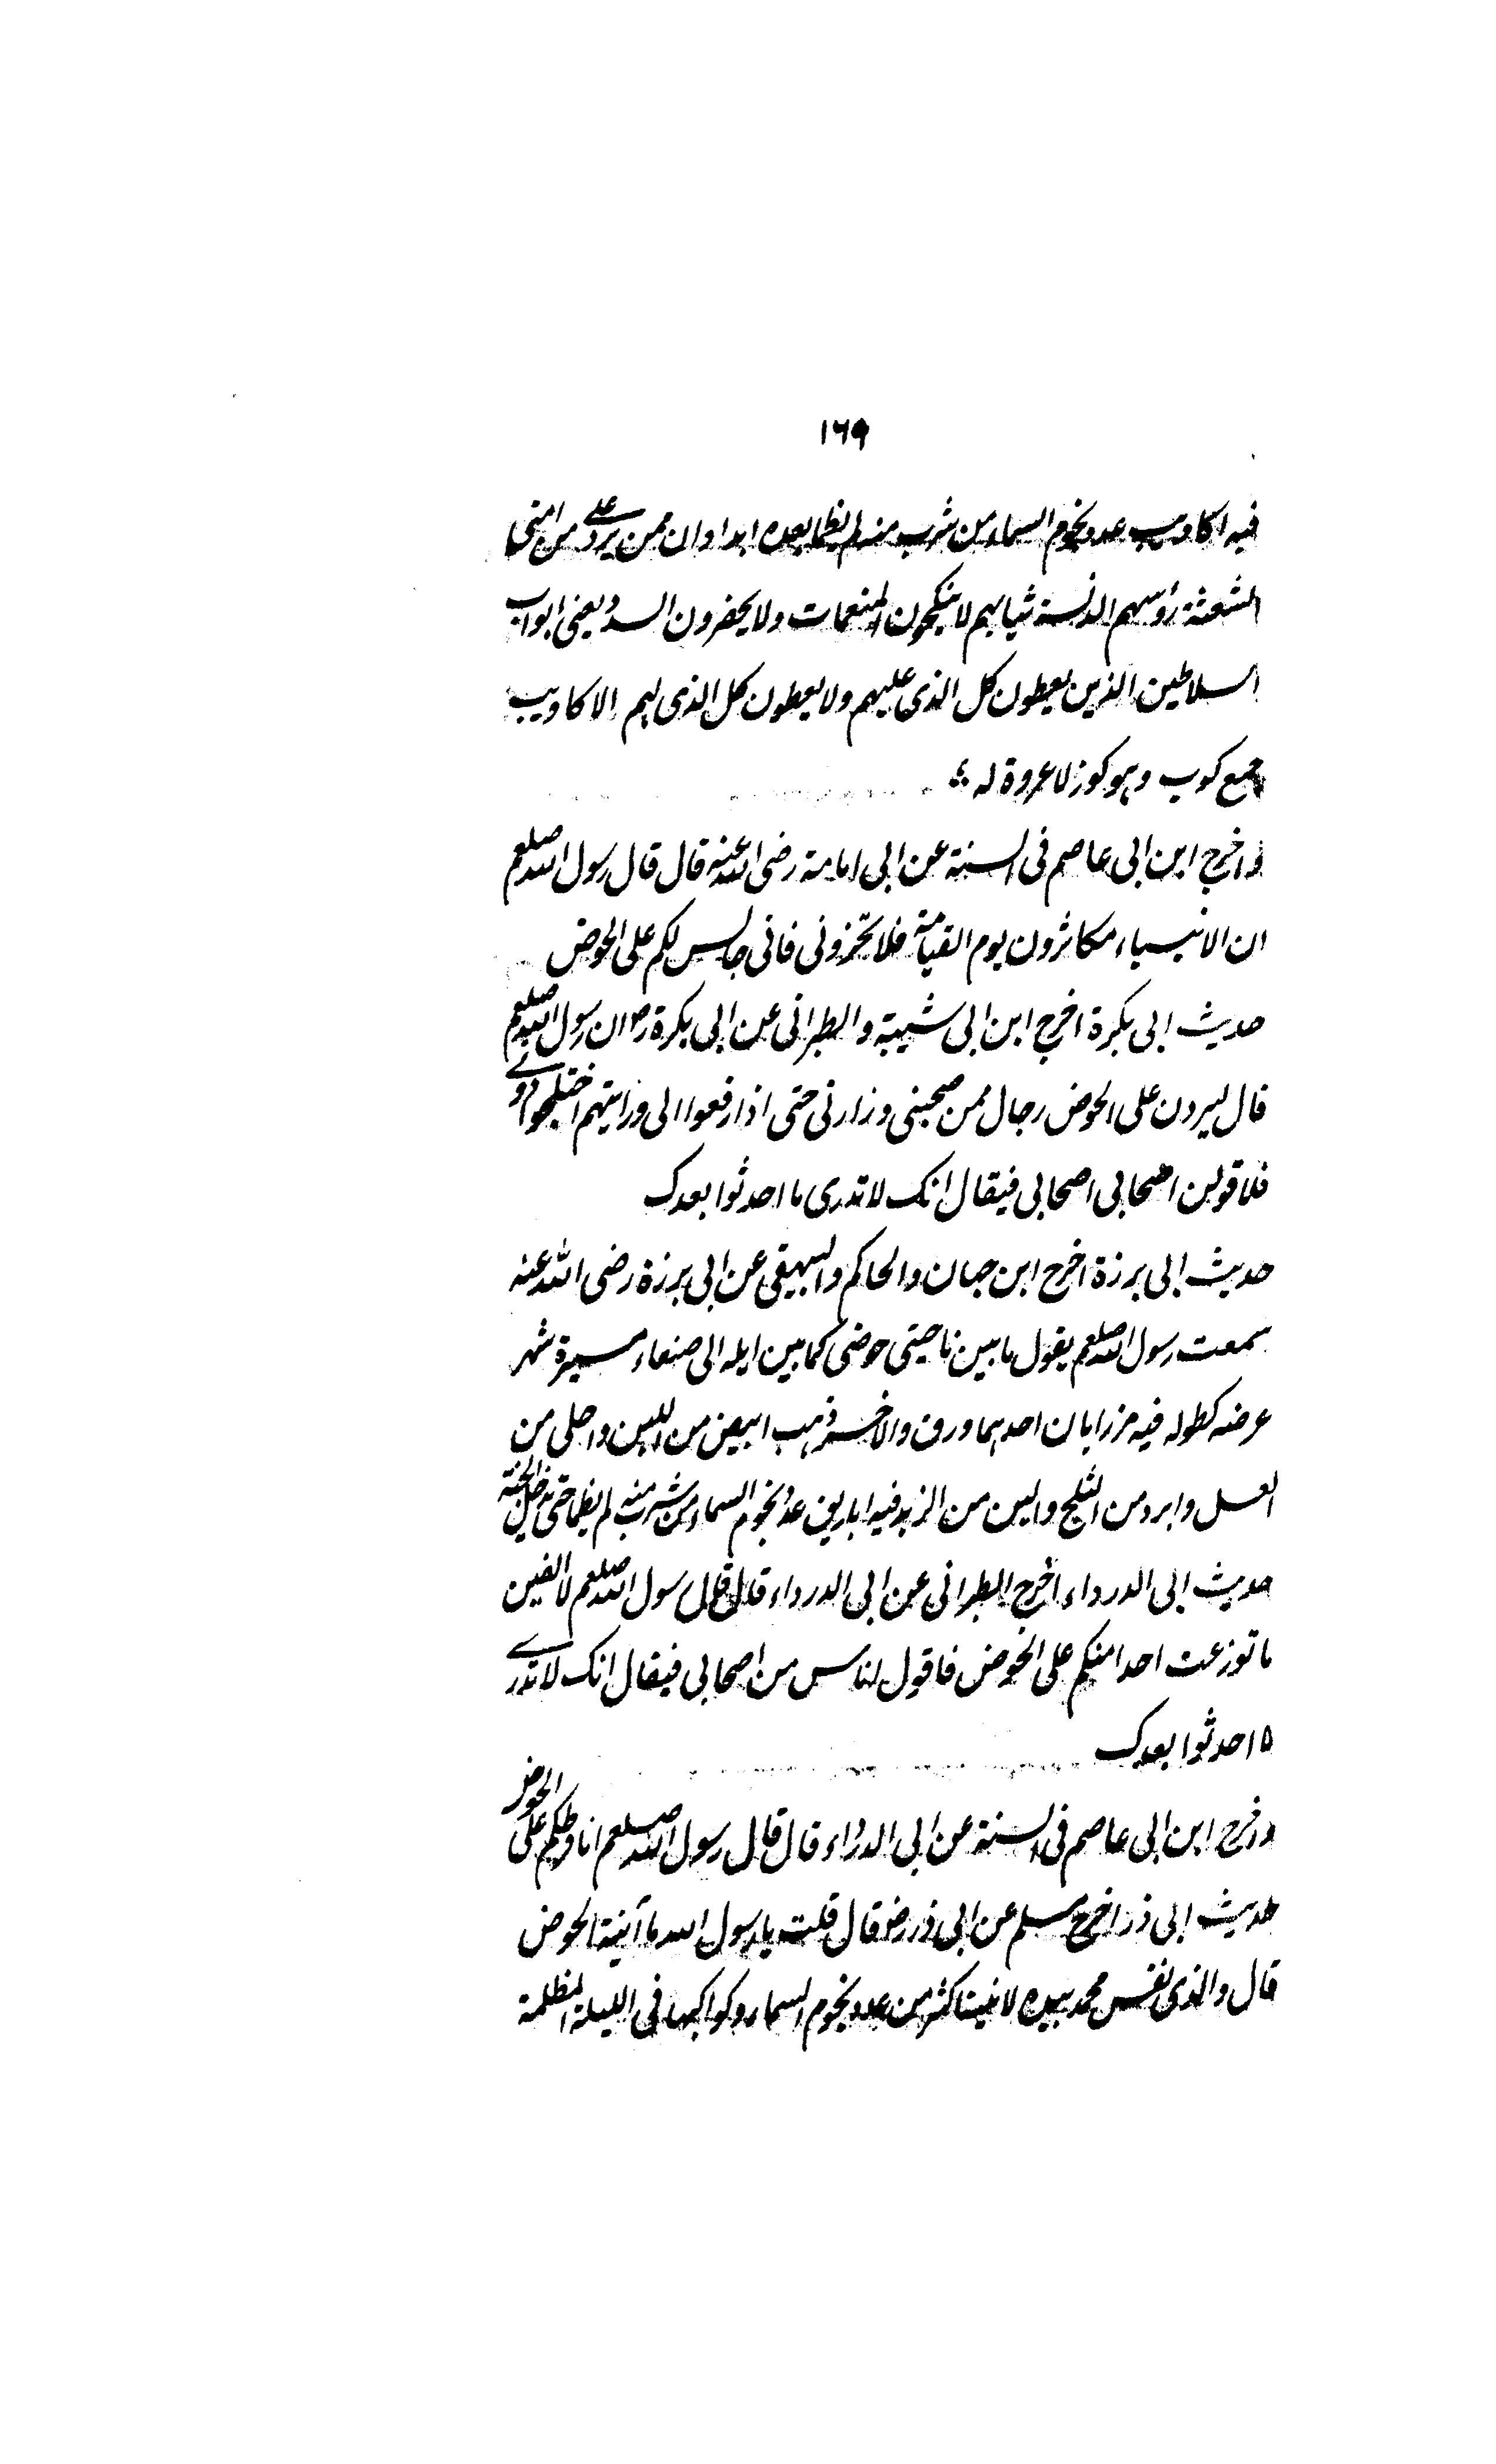 ١٦٩
فيه اكاويب عدد نجوم السماء من شرب منه لم يظما بعده ابدا وان ممن يرد على من امتى
الشعثة رؤسهم الدنسة ثيابهم لا ينكحون المنعمات ولا يحضرون السدد يعنى ابواب
السلاطين الذين يعطون كل الذى عليهم ولا يعطون كل الذى لهم الاكاويب
جمع كوب وهو كوز لا عروة له
واخرج ابن ابى عاصم فى السنة عن ابى امامة رضى الله عنه قال قال رسول الله صلعم
ان الانبياء مكاثرون يوم القيامة فلا تخزونى فانى جالس لكم على الحوض
حديث ابى بكرة اخرج ابن ابى شيبة والطبرانى عن ابى بكرة رض ان رسول الله صلعم
قال ليردن على الحوض رجال ممن صحبنى وزارنى حتى اذا رفعوا الى ورايتهم اختلجوا دونى
فلاقولن اصحابى اصحابى فيقال انك لا تدرى ما احدثوا بعدك
حديث ابى برزة اخرج ابن حبان والحاكم والبيهقى عن ابى برزة رضى الله عنه
سمعت رسول الله صلعم يقول ما بين ناحيتى حوضى كما بين ايله الى صنعاء مسيرة شهر
عرضه كطوله فيه مزرابان احدهما ورق والاخر ذهب ابيض من اللبن واحلى من
العسل وابرد من الثلج والين من الزبد فيه اباريق عدد نجوم السماء من شرب منه لم يظما حتى يدخل الجنة
حديث ابى الدرداء اخرج الطبرانى عن ابى الدرداء قال قال رسول الله صلعم لا الفين
ما توزعت احدا منكم على الحوض فاقول لناس من اصحابى فيقال انك لا تدرى
ما احدثوا بعدك
واخرج ابن ابى عاصم فى السنة عن ابى الدرداء قال قال رسول الله صلعم انا فرطكم على الحوض
حديث ابى ذر اخرج مسلم عن ابى ذر رض قال قلت يا رسول الله ما آنية الحوض
قال والذى نفس محمد بيده لانيته اكثر من عدد نجوم السماء وكواكبها فى الليلة المظلمة